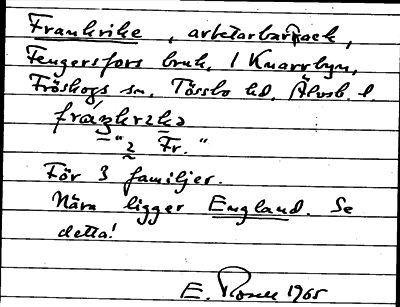 Frankrike, arbetarbarack,
Fengersfors bruk, / Knarrbyn,
Fröskogs sn, Tössbo hd, Älvsb. l.
fráŋkrikə
"i Fr."
För 3 familjer.
Nära ligger England. Se
detta!
E. Rosell 1965